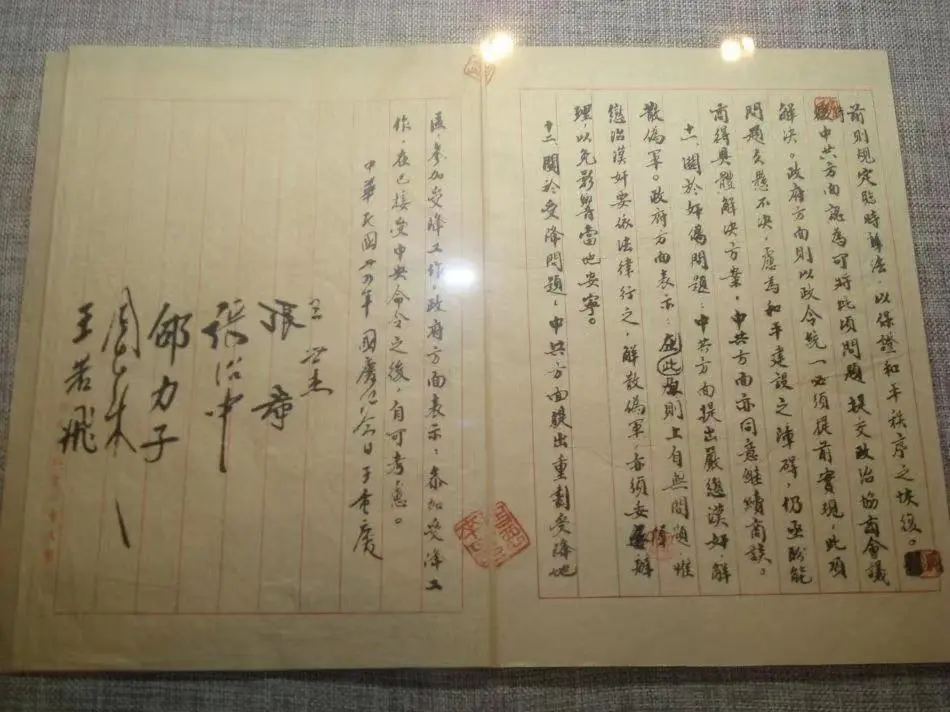 前則規定臨時辦法，以保證和平秩序之恢復。
中共方面認為可將此項問題提交政治協商會議
解決。政府方面則以政令統一必須提前實現，此項
問題久懸不決，慮為和平建設之障碍，仍亟盼能
商得具體解決方案，中共方面亦同意繼續商談。
十一、關於奸偽問題：中共方面提出嚴懲漢奸，解
散偽軍。政府方面表示：此原則上自無問題，惟
懲治漢奸要依法律行之，解散偽軍，亦須妥慎辦
理，以免影響當地安寧。
十二、關於受降問題，中共方面提出重劃受降地
區，參加受降工作，政府方面表示：參加受降工
作，在已接受中央命令之後，自可考慮。
中華民國卅四年國慶紀念日于重慶
王世杰
張羣
張治中
邵力子
周恩來
王若飛